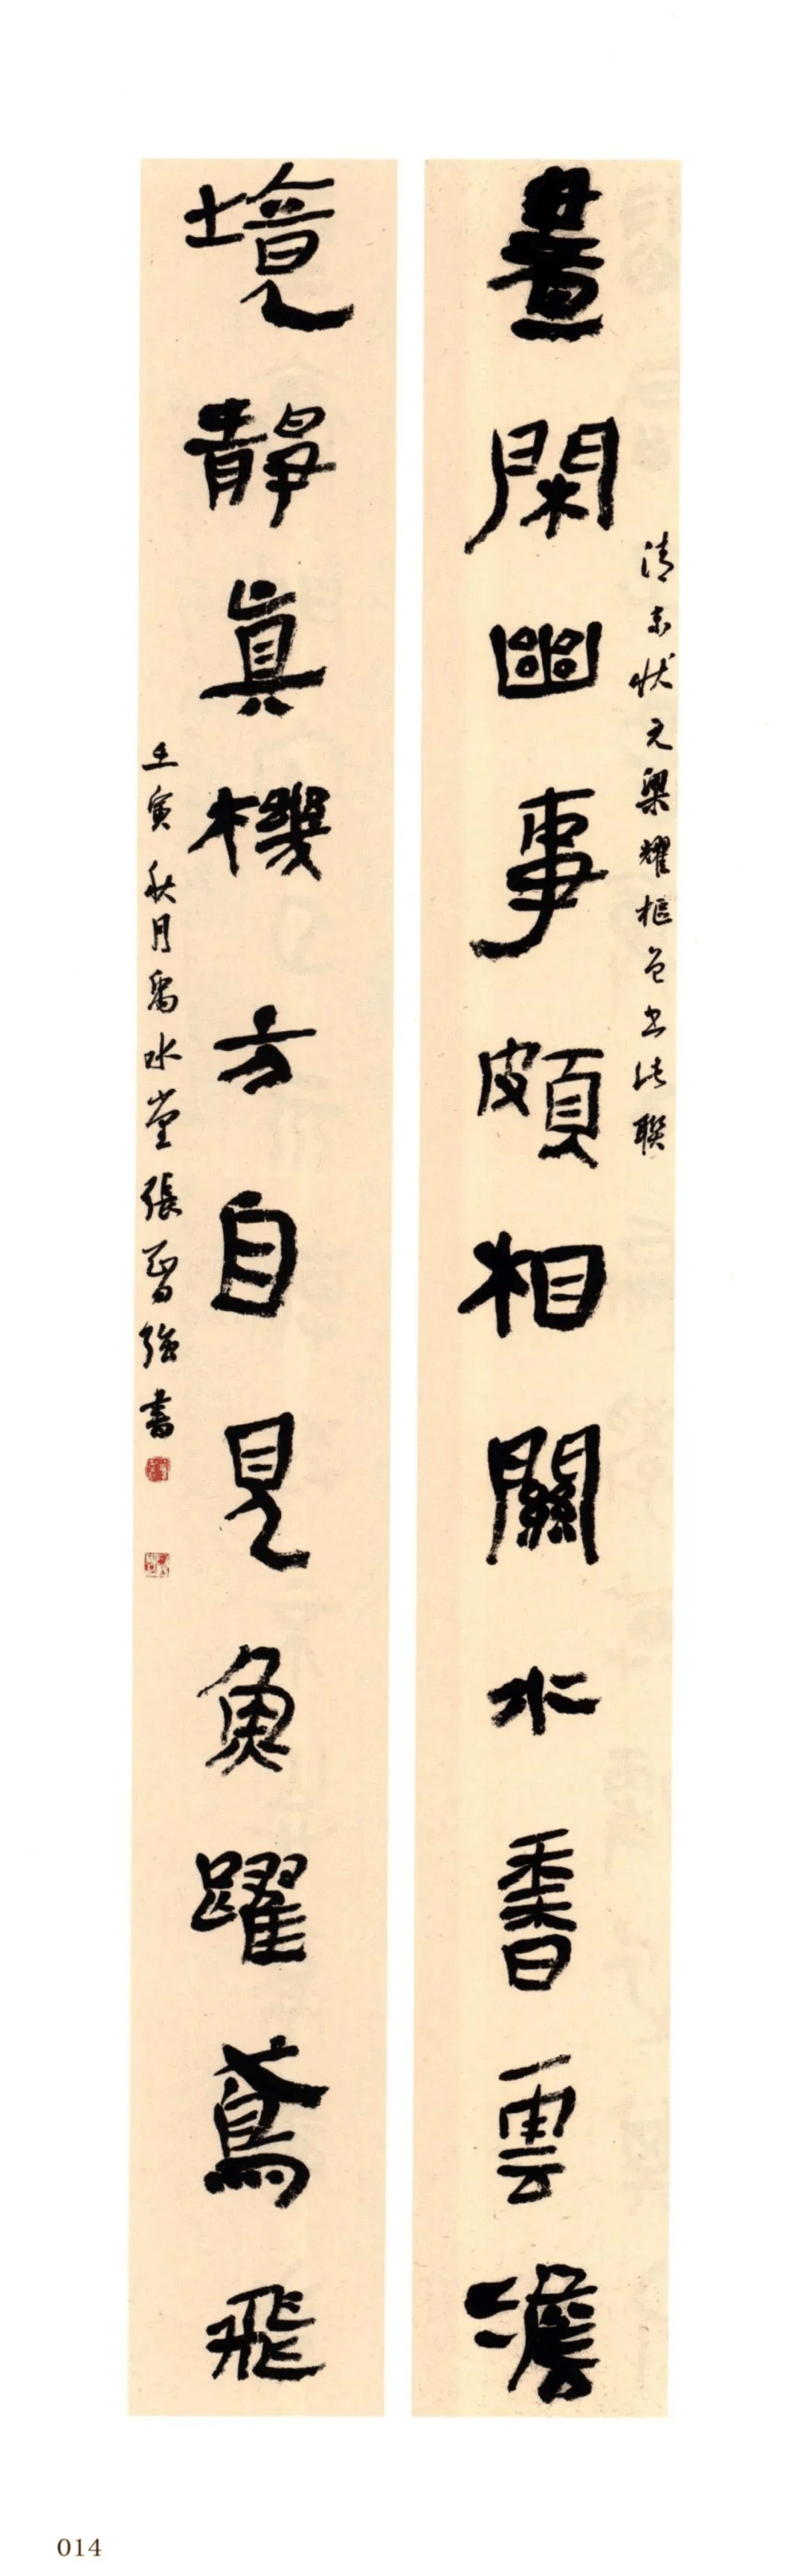 清末狀元梁耀樞曾書此聯
晝閑幽事頗相關水香雲澹
境靜真機方自見魚躍鳶飛
壬寅秋月禹水堂張晉強書
014